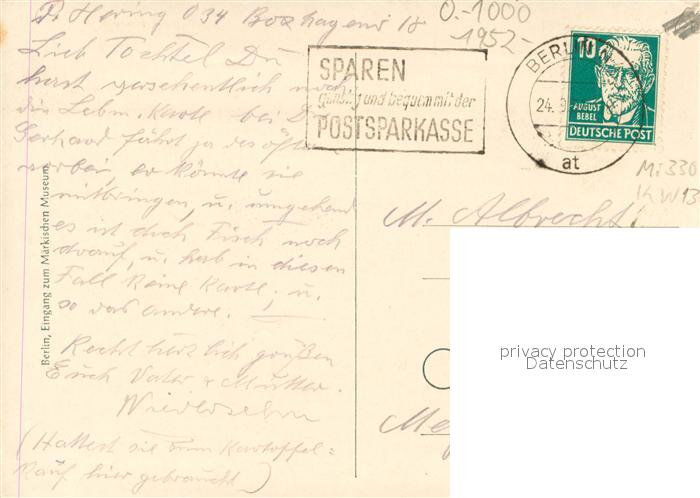 Hering O 34 Boxhagener 18
Lieb Tochtel Du
hast versehentlich noch
die Lebm. Karte bei Dir
Gerhard fährt ja des öfter
vorbei, er könnte sie
mitbringen, u. umgehend
es ist doch Fisch noch
drauf, u. hab in diesen
Fall keine Karte. u.
so das andere.
Recht herzlich grüßen
Euch Vater & Mutter.
Wiedersehn
(Hattest sie zum Kartoffel=
kauf hier gebraucht)
Berlin, Eingang zum Märkischen Museum
0.-1000
-1952-
SPAREN
günstig und bequem mit der
POSTSPARKASSE
BERLIN
24.
at
10
AUGUST
BEBEL
DEUTSCHE POST
Mi 330
KW 13
M. Albrecht
privacy protection
Datenschutz